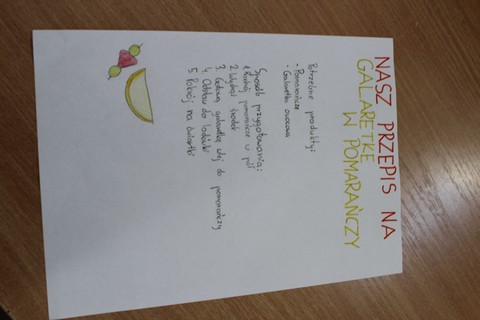 NASZ PRZEPIS NA
GALARETKĘ
W POMARAŃCZY
Potrzebne produkty:
- Pomarańcze
- Galaretka owocowa
Sposób przygotowania:
1. Pokrój pomarańcze w pół
2. Wydrąż środek
3. Gotową galaretkę wlej do pomarańczy
4. Odstaw do lodówki
5. Pokrój na ćwiartki